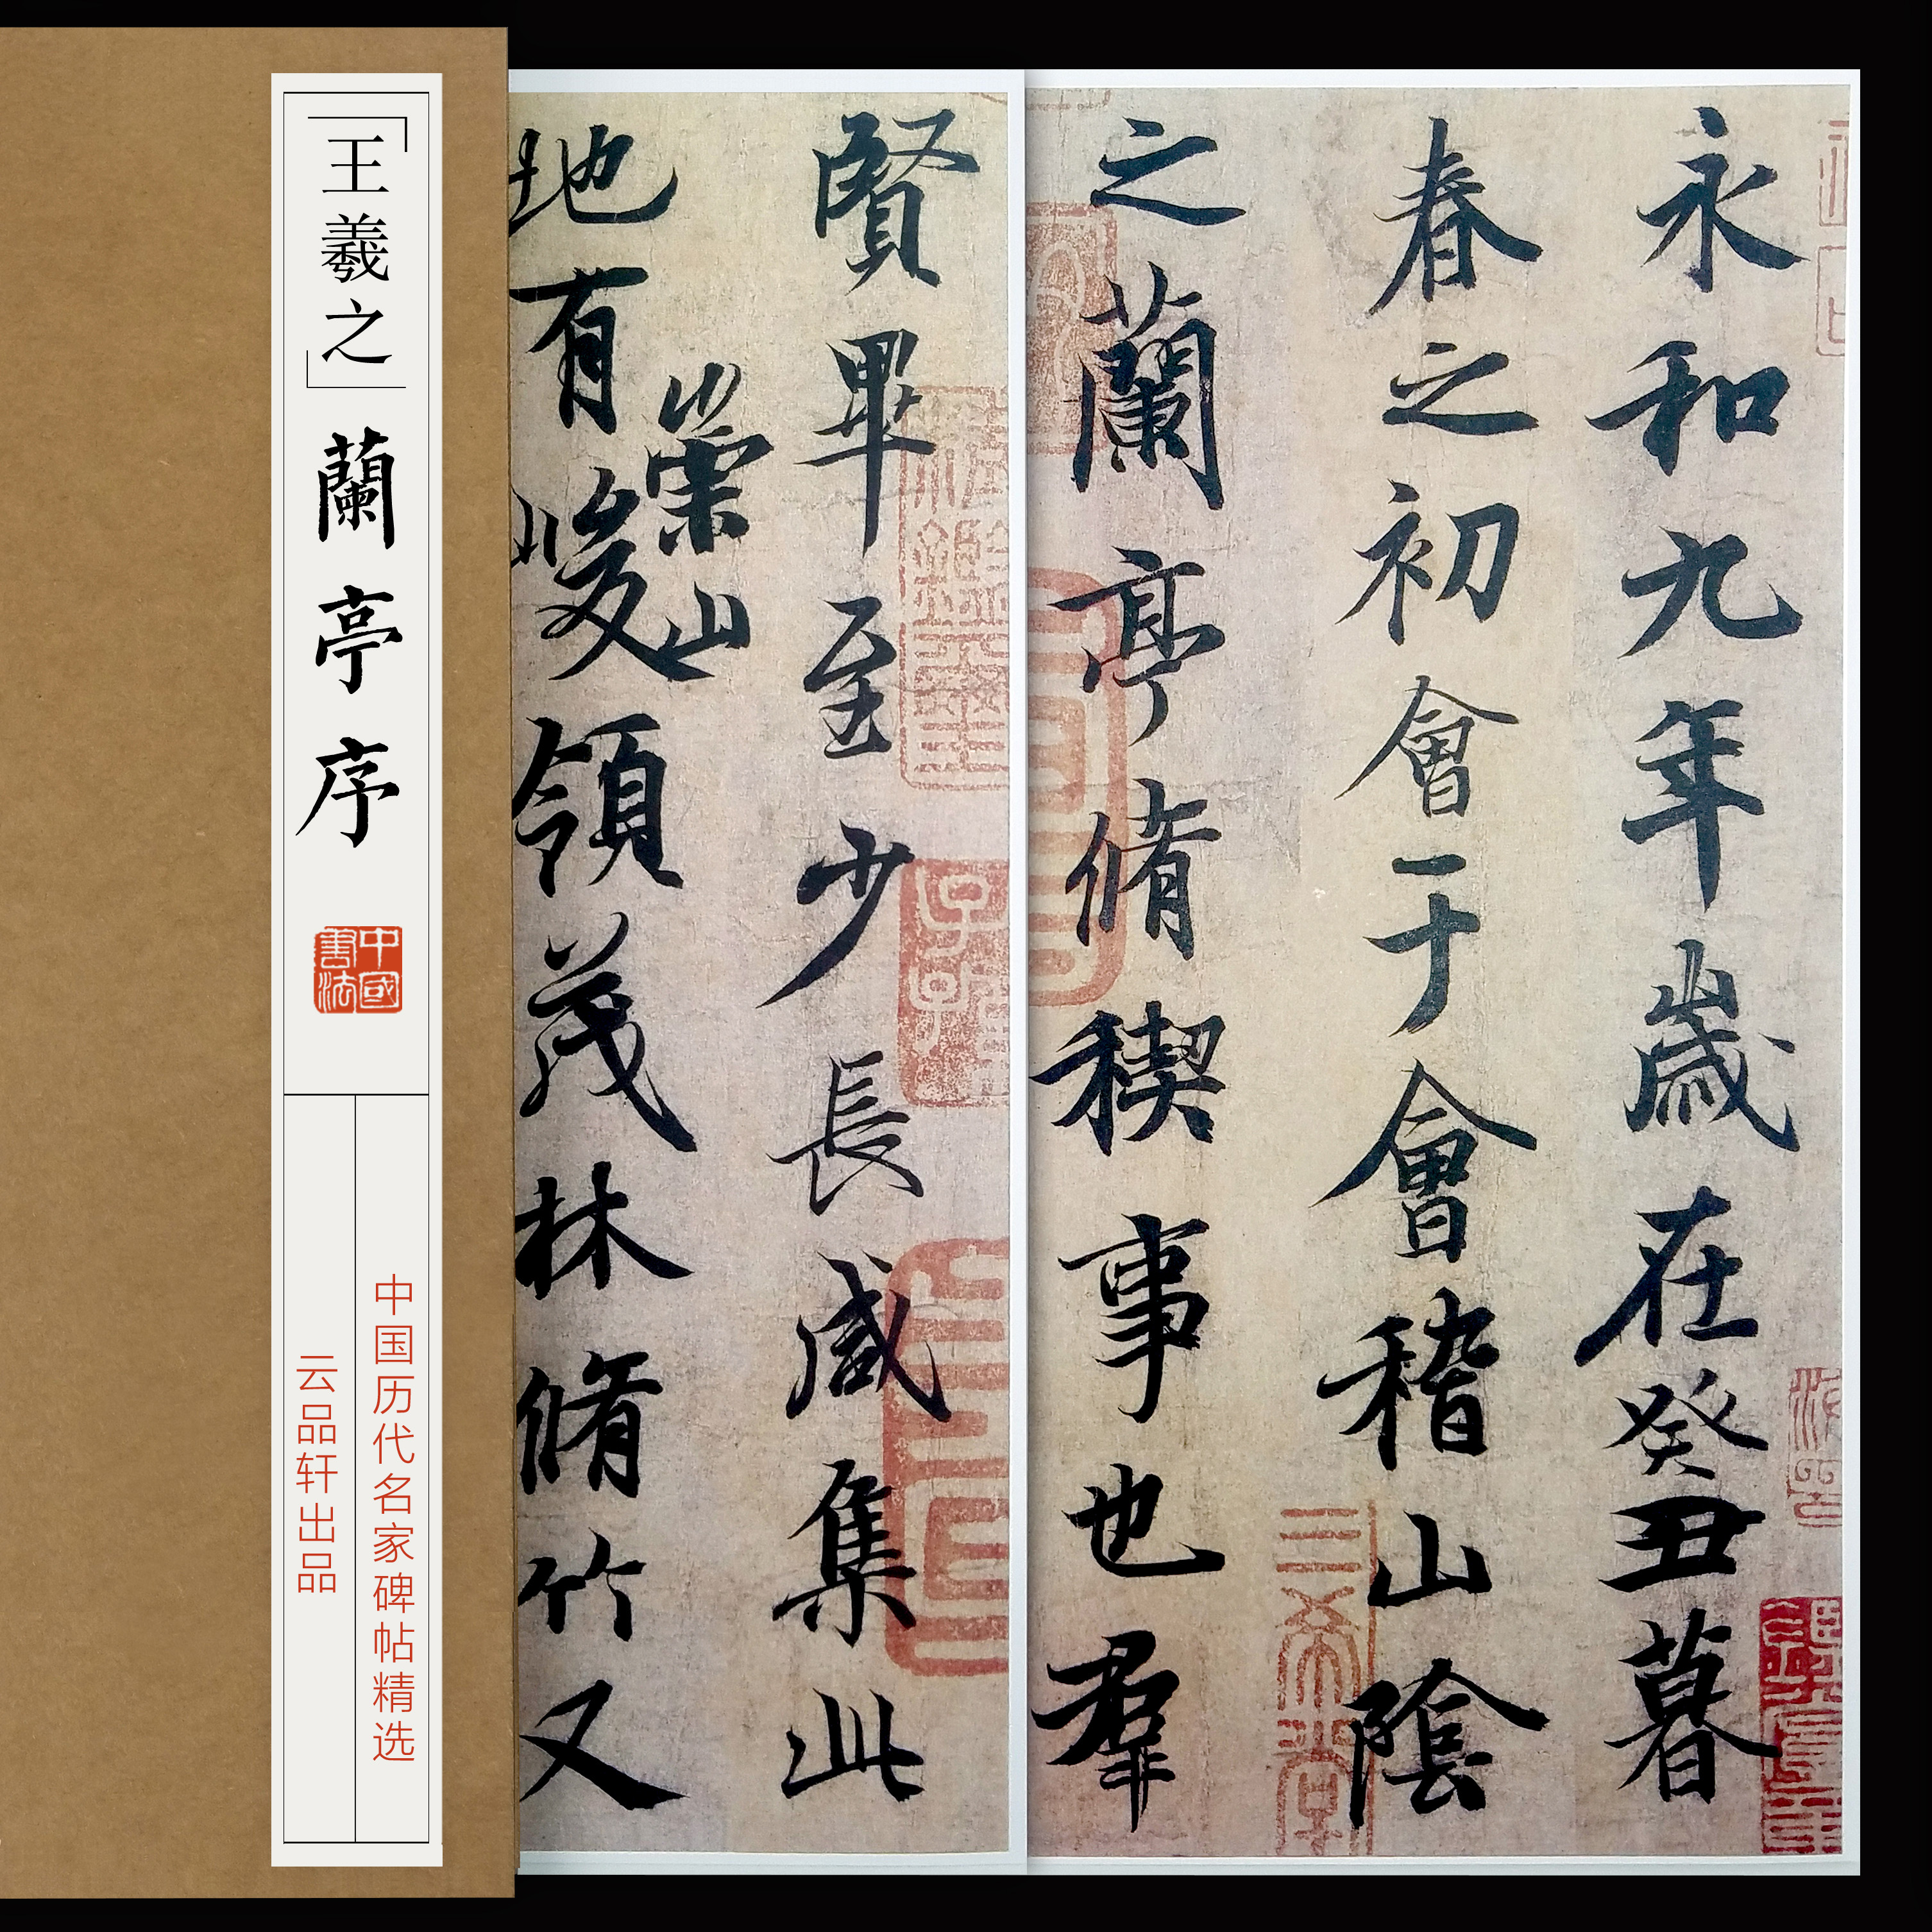 「王羲之」蘭亭序
中國書法
中国历代名家碑帖精选
云品轩出品
永和九年歲在癸丑暮
春之初會于會稽山陰
三希堂
之蘭亭脩稧事也羣
賢畢至少長咸集此
崇山
地有峻領茂林脩竹又